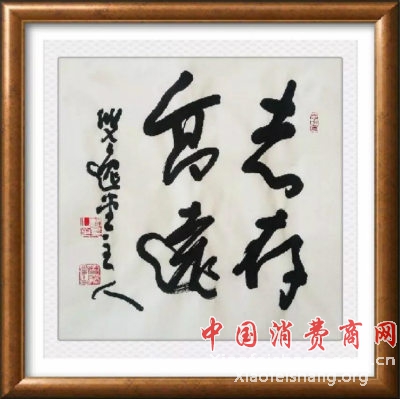 志存
高遠
堂主人
中国消费商网
xiaofeishang.org